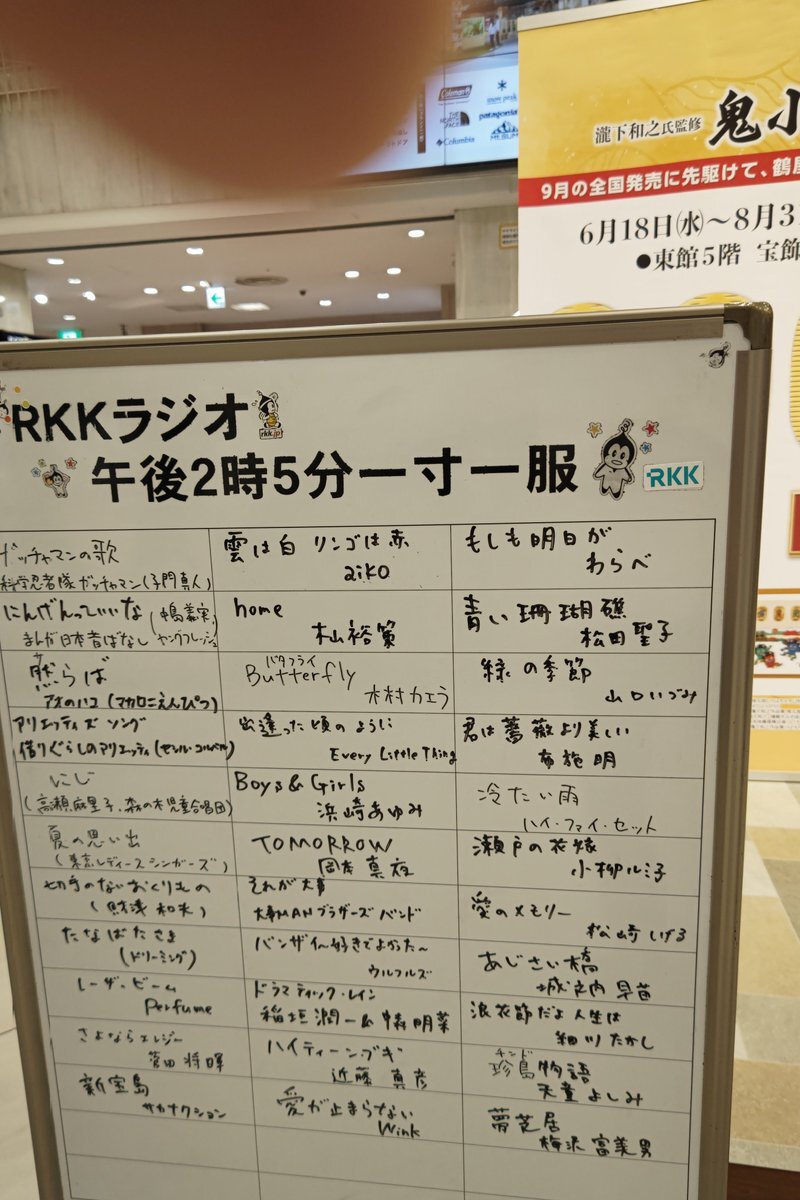 Coleman
snow peak
THE NORTH FACE
patagonia
Columbia
瀧下和之氏監修 鬼小
9月の全国発売に先駆けて、鶴屋
6月18日(水)〜8月3
●東館5階 宝飾
RKKラジオ
rkk.jp
午後2時5分一寸一服
RKK
ガッチャマンの歌
科学忍者隊ガッチャマン(子門真人)
にんげんっていいな (中島義実
まんが日本昔ばなし ヤングフレッシュ)
然らば
アオのハコ (マカロニえんぴつ)
アリエッティズ ソング
借りぐらしのアリエッティ (セシル・コルベル)
にじ
(高瀬麻里子、森の木児童合唱団)
夏の思い出
(東京レディースシンガーズ)
切手のないおくりもの
(財津和夫)
たなばたさま
(ドリーミング)
レーザービーム
Perfume
さよならエレジー
菅田将暉
新宝島
サカナクション
雲は白 リンゴは赤
aiko
home
木山裕策
バタフライ
Butterfly
木村カエラ
出逢った頃のように
Every Little Thing
Boys & Girls
浜崎あゆみ
TOMORROW
岡本真夜
それが大事
大事MANブラザーズバンド
バンザイ〜好きでよかった〜
ウルフルズ
ドラマティック・レイン
稲垣潤一&中森明菜
ハイティーンブギ
近藤真彦
愛が止まらない
Wink
もしも明日が
わらべ
青い珊瑚礁
松田聖子
緑の季節
山口いづみ
君は薔薇より美しい
布施明
冷たい雨
ハイ・ファイ・セット
瀬戸の花嫁
小柳ルミ子
愛のメモリー
松崎しげる
あじさい橋
城之内早苗
浪花節だよ人生は
細川たかし
チンド
珍島物語
天童よしみ
夢芝居
梅沢富美男